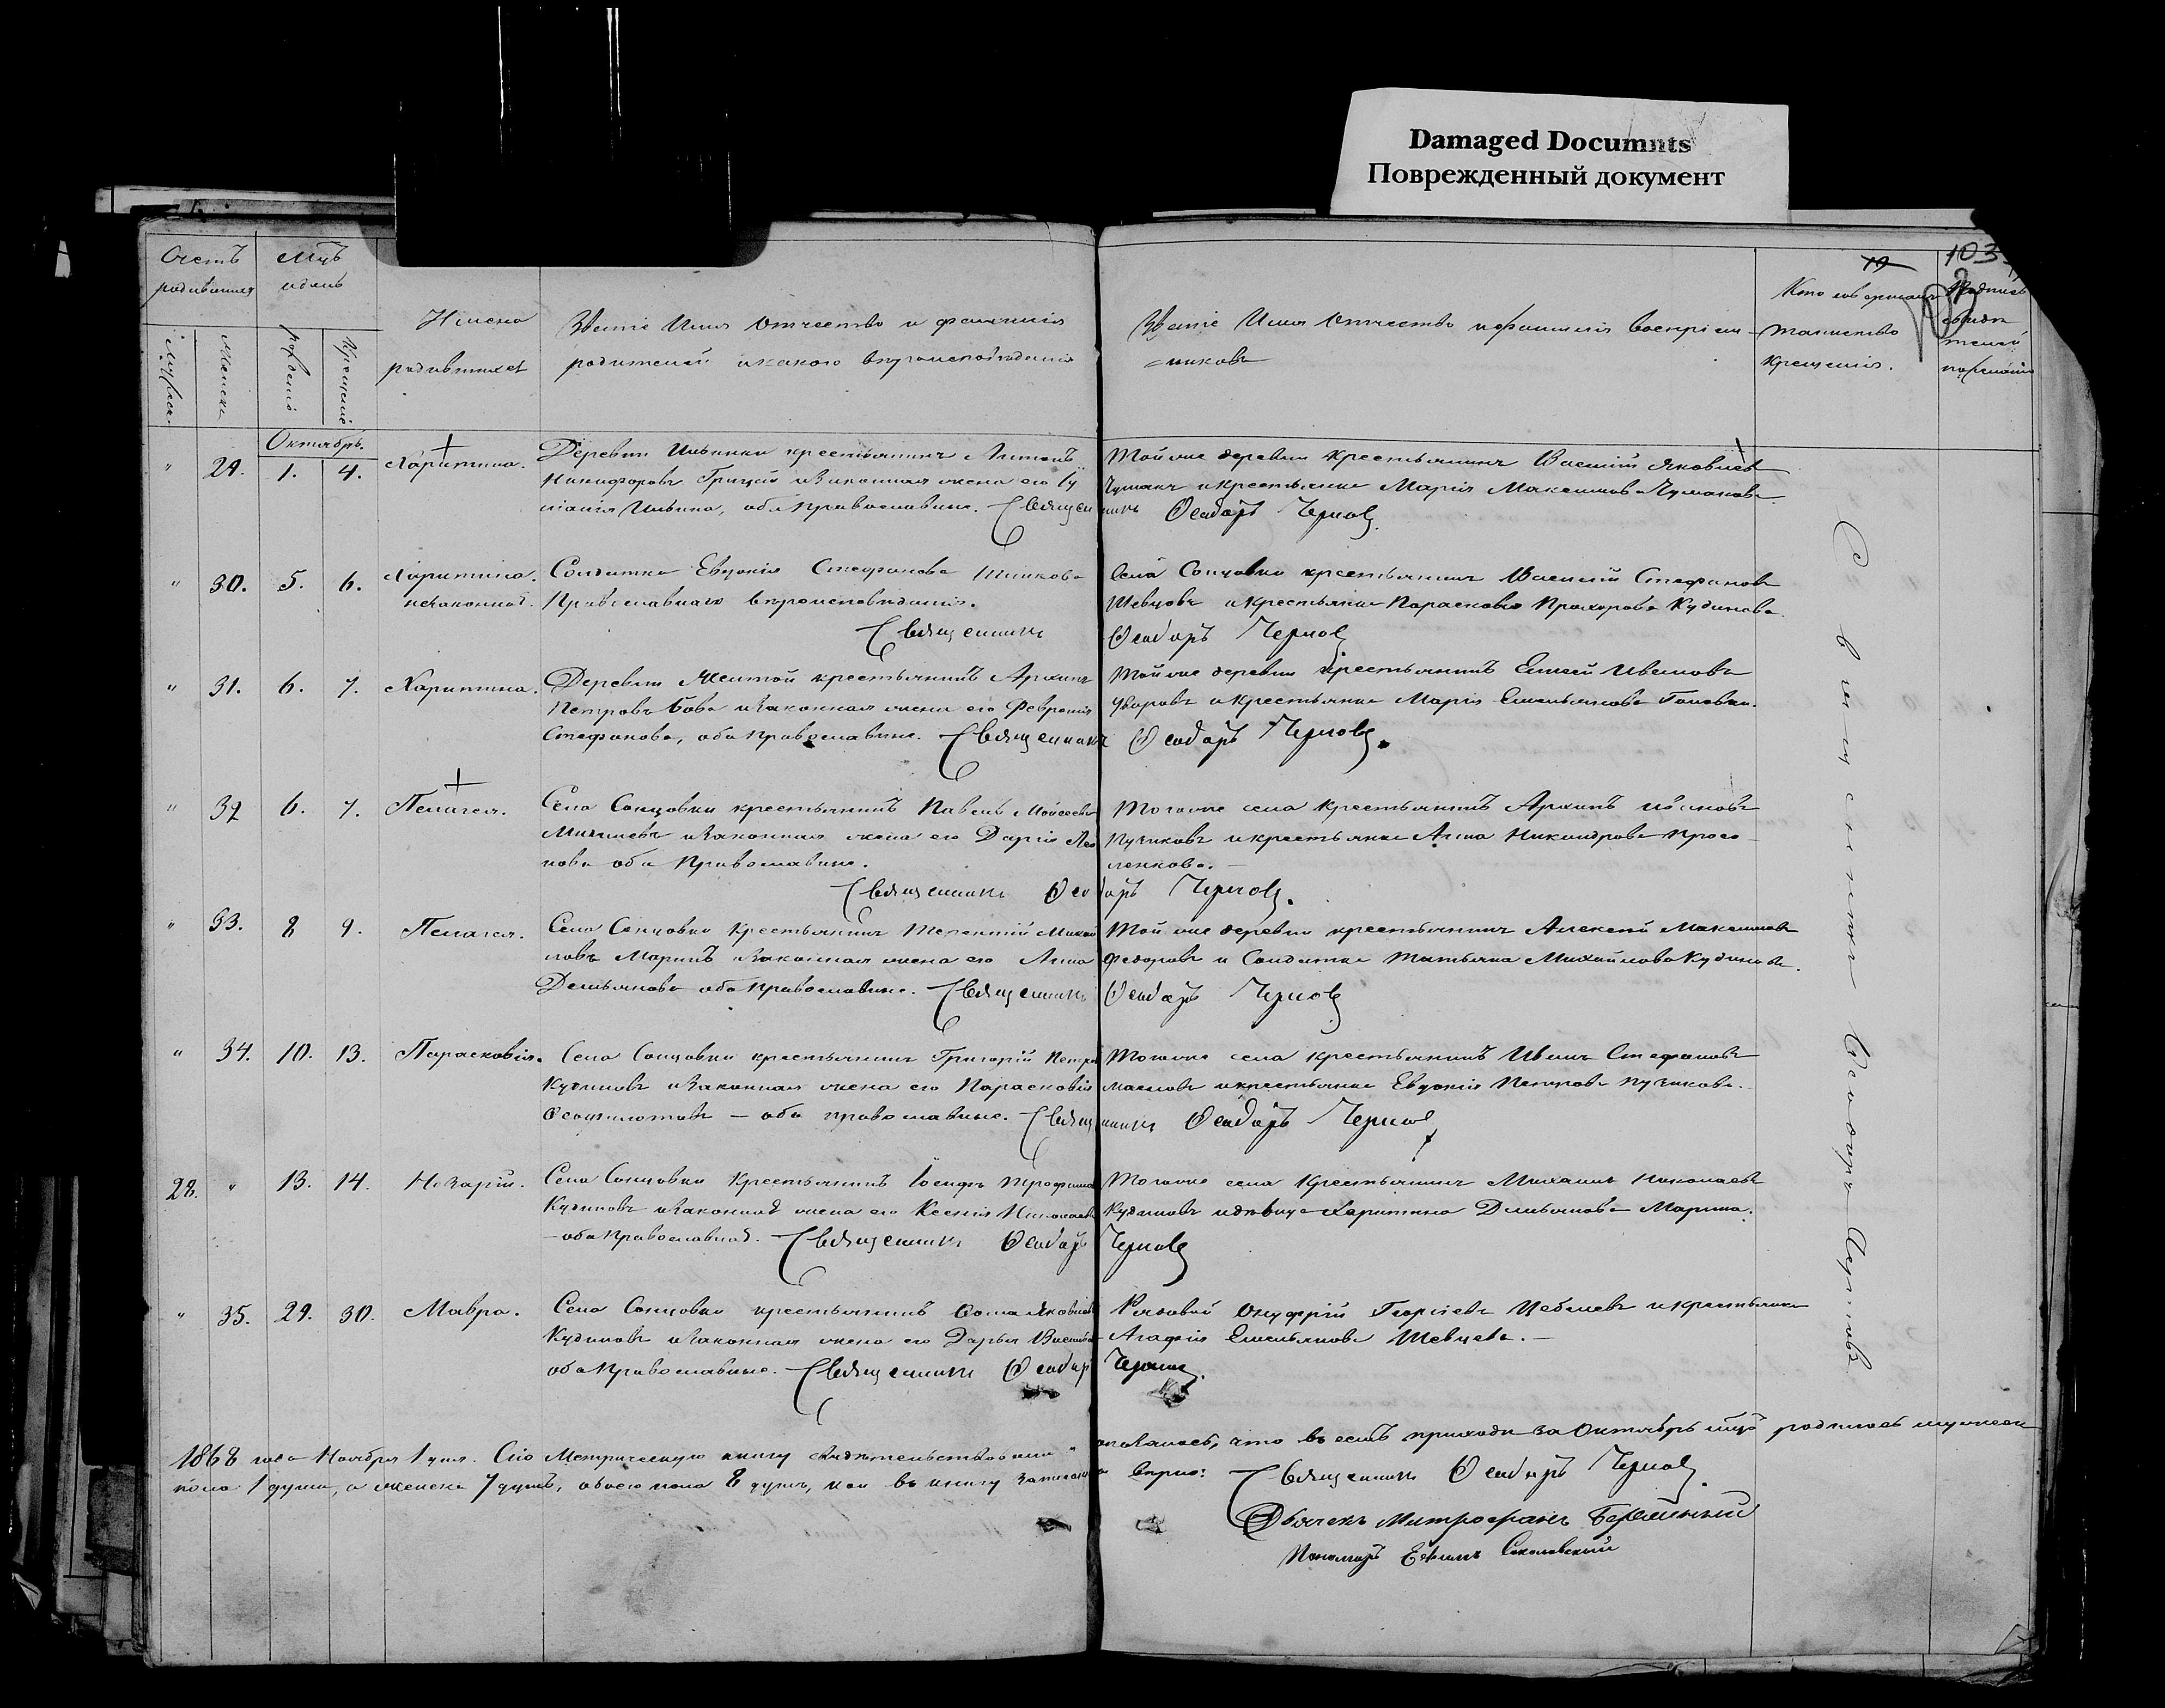 Damaged Documnts
Поврежденный документ
103
19
Счетъ родившихся
Мужеска
Женска
рожденія
Крещенія
Имена
родившихся
Званіе Имя Отчество и фамилія
родителей и какого вѣроисповѣданія
Званіе Имя Отчество и фамилія воспріем-
никовъ
Кто совершалъ
таинство
крещенія.
Октябрь.
" 29. 1. 4. Харитина.
Деревни Ильинки крестьянинъ Антонъ
Никифоровъ Грицай и законная жена его
Ильина, оба православные. Священникъ Ѳеодоръ Черновъ
Той же деревни крестьянинъ Василій Яковлевъ
Чумакъ и крестьянка Марія Максимова Чумакова
" 30. 5. 6. Харитина. незаконная.
Солдатка Евдокія Стефанова
Православнаго вѣроисповѣданія.
Священникъ Ѳеодоръ Черновъ
Села Сонцовки крестьянинъ Василій Стефановъ
Шевцовъ и крестьянка Параскова Прохорова Кудинова.
" 31. 6. 7. Харитина.
Деревни Желтой крестьянинъ Архипъ
Петровъ Бова и законная жена его Февронія
Стефанова, оба православные. Священникъ Ѳеодоръ Черновъ.
Той же деревни крестьянинъ Елисей Ивановъ
Уваровъ и крестьянка Марія Емельянова Головки.
" 32 6. 7. Пелагея.
Села Сонцовки крестьянинъ Павелъ Мойсеевъ
и законная жена его Дарія
оба Православные.
Священникъ Ѳеодоръ Черновъ.
Того же села крестьянинъ Архипъ Ивановъ
Пузиковъ и крестьянка Анна Никандрова
" 33. 8 9. Пелагея.
Села Сонцовки Крестьянинъ Терентій Михай
ловъ Маринъ и законная жена его Анна
Демьянова оба православные. Священникъ Ѳеодоръ Черновъ
Той же деревни крестьянинъ Алексей Максимовъ
Федоровъ и Солдатка Татьяна Михайлова Кудинова.
" 34. 10. 13. Парасковія.
Села Сонцовки крестьянинъ Григорій Петровъ
Кудиновъ и законная жена его Парасковія
— оба православные. Священникъ Ѳеодоръ Черновъ
Того же села крестьянинъ Иванъ Стефановъ
Масловъ и крестьянка Евдокія Петрова Пузикова.
28. " 13. 14. Назарій.
Села Сонцовки Крестьянинъ Іосифъ Трофимовъ
Кудиновъ и законная жена его Ксенія Николаева
— оба православные. Священникъ Ѳеодоръ Черновъ
Того же села Крестьянинъ Михаилъ Николаевъ
Кудиновъ и дѣвица Харитина Демьянова Марина.
" 35. 29. 30. Мавра.
Села Сонцовки крестьянинъ Ѳома Яковлевъ
Кудиновъ и законная жена его Дарья
оба Православные. Священникъ Ѳеодоръ Черновъ
Рядовой Онуфрій Георгіевъ и крестьянка
Агафія Емельянова Шевцева. —
Священникъ Ѳеодоръ Черновъ
1868 года Ноября 1 дня. Сію Метрическую книгу свидѣтельствовали и оказалось, что въ семъ приходѣ за Октябрь мцъ родилось мужеска
пола 1 душа, а женска 7 душъ, обоего пола 8 душъ, кои въ книгу записаны вѣрно: Священникъ Ѳеодоръ Черновъ.
Дьячекъ Митрофанъ
Пономарь Ефимъ Соколовский